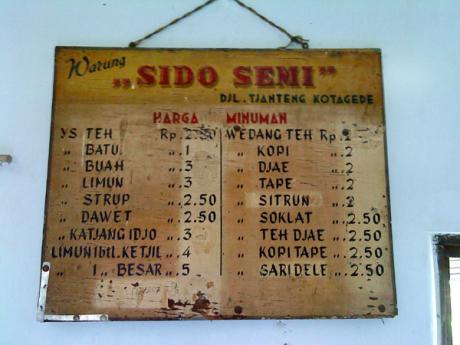 Warung
„SIDO SEMI”
DJL. TJANTENG KOTAGEDE
HARGA MINUMAN
YS TEH Rp. 2.50
„ BATU „ . 1
„ BUAH „ . 3
„ LIMUN „ . 3
„ STRUP „ . 2.50
„ DAWET „ . 2.50
„ KATJANG IDJO „ . 3
LIMUN 1 btl. KETJIL „ . 4
„ 1 „ BESAR „ . 5
WEDANG TEH Rp. 2
„ KOPI „ . 2
„ DJAE „ . 2
„ TAPE „ . 2
„ SITRUN „ . 2
„ SOKLAT „ . 2.50
„ TEH DJAE „ . 2.50
„ KOPI TAPE „ . 2.50
„ SARIDELE „ . 2.50